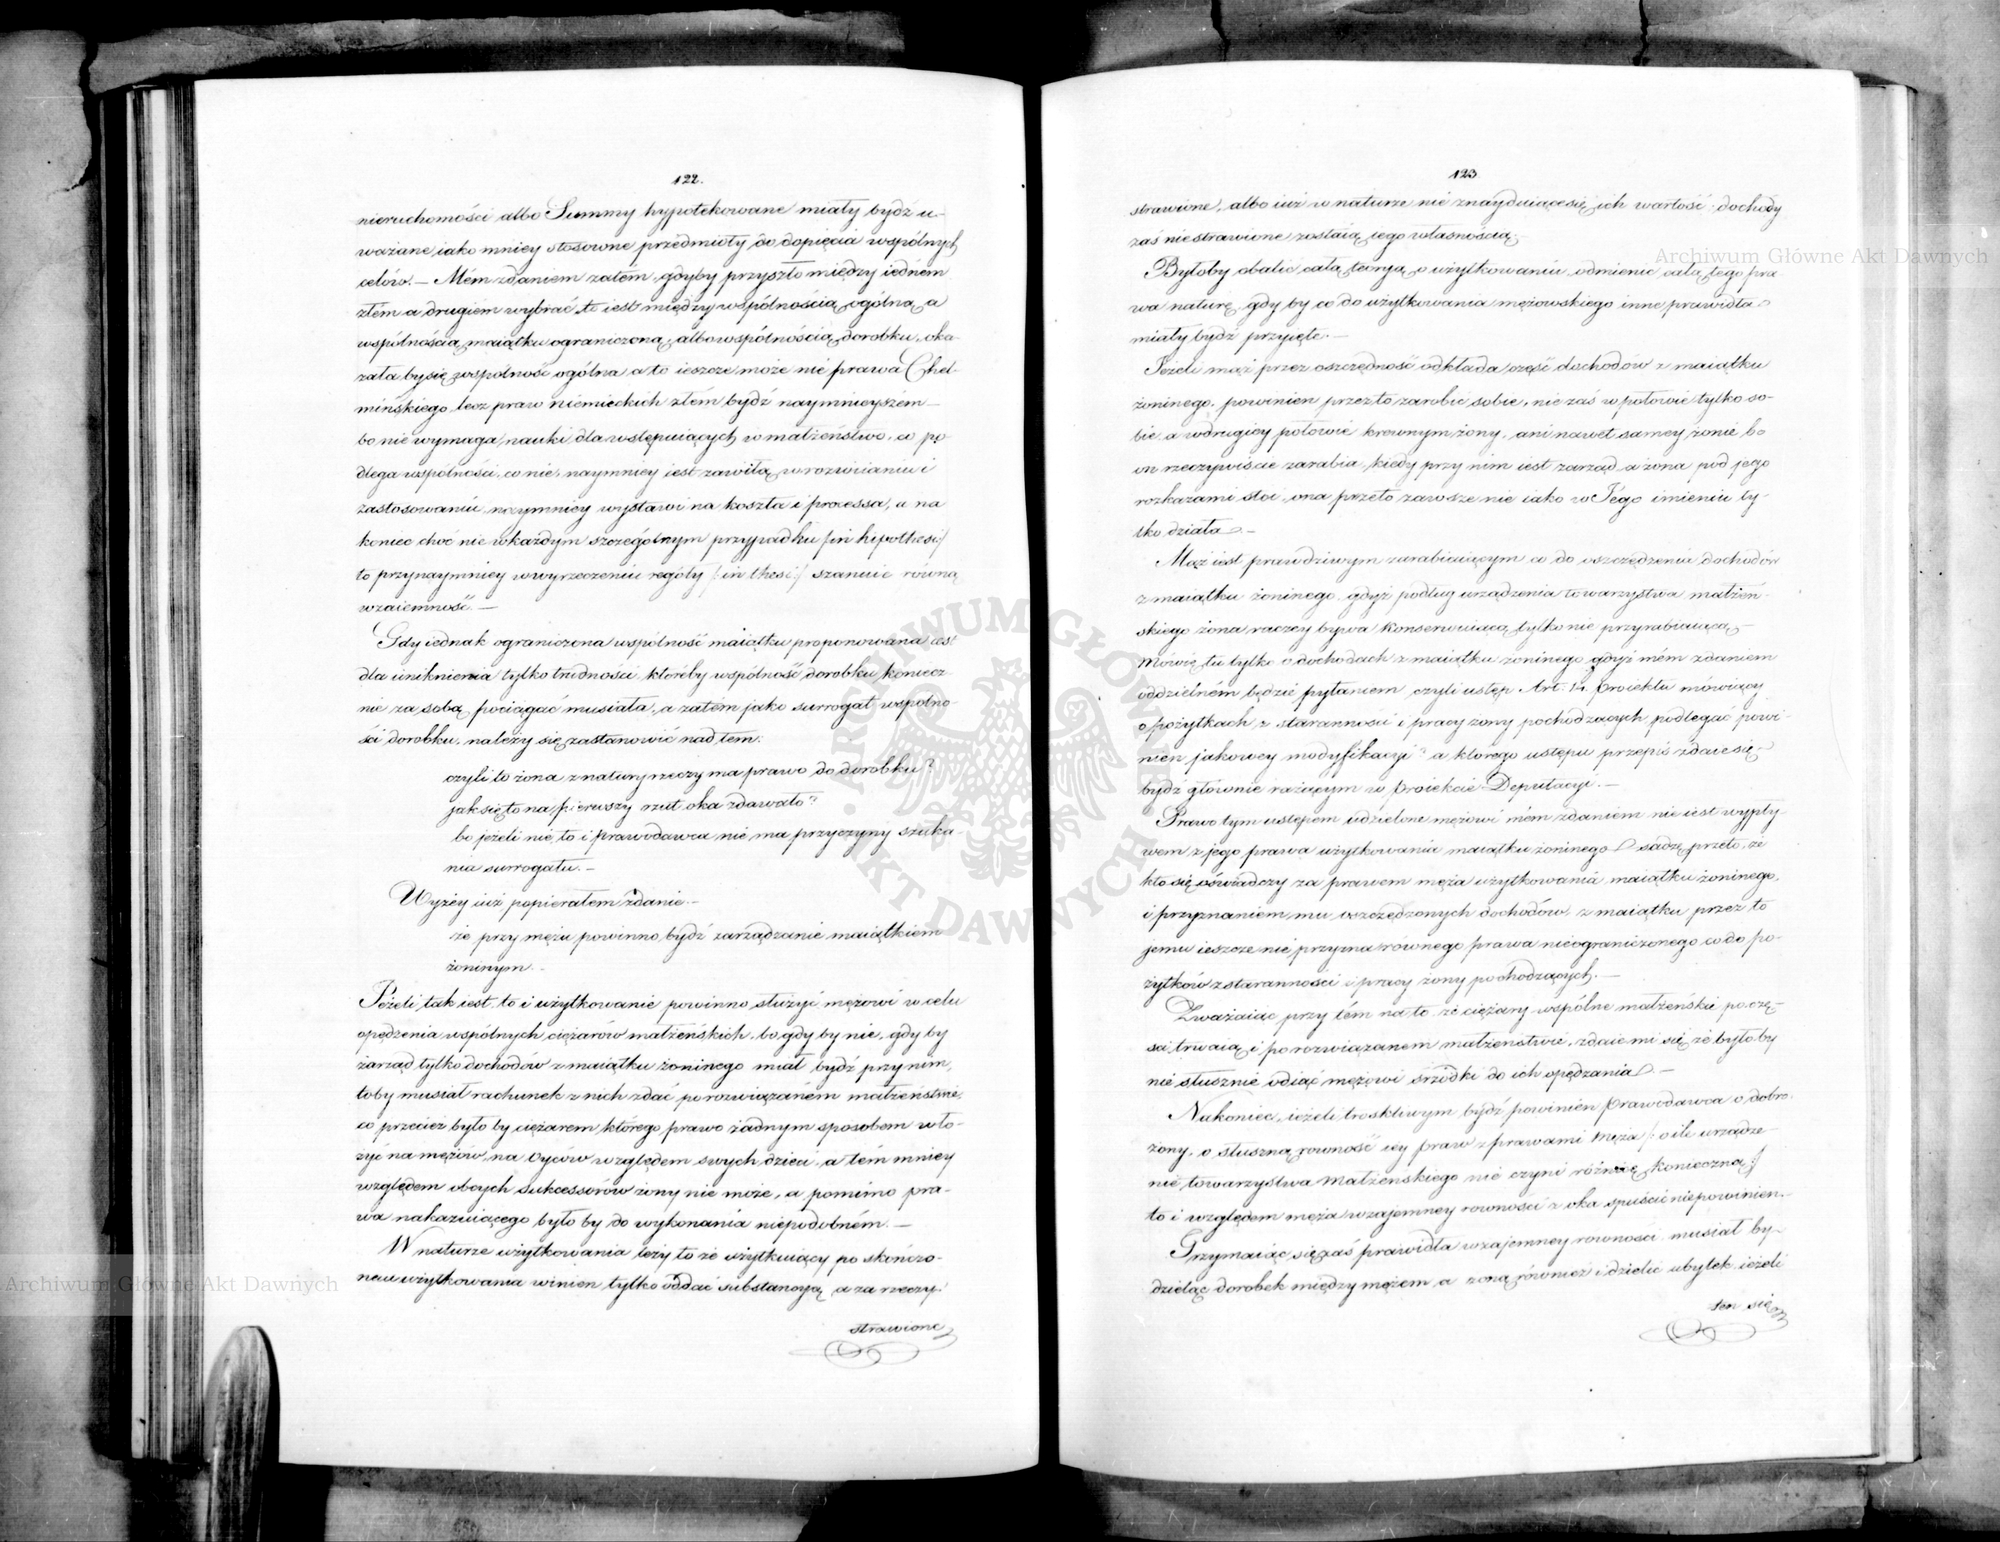 122.
nieruchomości albo Summy hypotekowane miały bydź u-
ważane iako mniey stosowne przedmioty do dopięcia wspólnych
celów. — Mém zdaniem zatém, gdyby przyszło między iedném
złém a drugiem wybrać, to iest między wspólnością ogólną a
wspólnością maiątku ograniczoną, albo wspólnością dorobku, oka-
załaby się wspólność ogólna a to ieszcze może nie prawa Cheł-
mińskiego lecz praw niemieckich złém bydź naymnieyszém —
bo nie wymaga nauki dla wstępuiących w małżeństwo, co po-
dlega wspólności, co nie, naymniey iest zawiłą w rozwianiu i
zastosowaniu, naymniey wystawi na koszta i processa, a na
koniec choć nie w każdym szczególnym przypadku /: in hipothesi :/
to przynaymniey w wyrzeczeniu reguły /: in thesi :/ szanuie równą
wzaiemność. —
Gdy iednak ograniczona wspólność maiątku proponowana iest
dla uniknienia tylko trudności, któréby wspólność dorobku koniecz-
nie za sobą pociągać musiała, a zatém jako surrogat wspólno-
ści dorobku, należy się zastanowić nad tem:
czyli to żona z natury rzeczy ma prawo do dorobku?
jak się to na pierwszy rzut oka zdawało?
bo jeżeli nie to i prawodawca nie ma przyczyny szuka-
nia surrogatu. —
Wyżéy iuż popierałem zdanie —
że przy mężu powinno bydź zarządzanie maiątkiem
żoninym. —
Jeżeli tak iest, to i użytkowanie powinno służyć mężowi w celu
opędzenia wspólnych ciężarów małżeńskich, bo gdyby nie, gdyby
zarząd tylko dochodów z maiątku żoninego miał bydź przy nim,
toby musiał rachunek z nich zdać po rozwiązaném małżeństwie,
co przecież byłoby ciężarem którego prawo żadnym sposobem wło-
żyć na mężów, na Oyców względem swych dzieci, a tém mniey
względem obcych sukcessorów żony nie może, a pomimo pra-
wa nakazuiącego byłoby do wykonania niepodobném. —
W naturze użytkowania leży to że użytkuiący po skończo-
nem użytkowaniu winien tylko oddać substancyą, a za rzeczy
strawione
123
strawione, albo iuż w naturze nie znayduiące się, ich wartość; dochody
zaś niestrawione zostaią jego własnością. —
Byłoby obalić całą teoryą o użytkowaniu, odmienić całą jego pra-
wa naturę, gdyby co do użytkowania mężowskiego inne prawidła
miały bydź przyjęte. —
Jeżeli mąż przez oszczędność odkłada część dochodów z maiątku
żoninego, powinien przez to zarobić sobie, nie zaś w połowie tylko so-
bie, a w drugiey połowie krewnym żony, ani nawet samey żonie bo
on rzeczywiście zarabia, kiedy przy nim iest zarząd, a żona pod jego
rozkazami stoi, ona przeto zawsze nie iako w Jego imieniu ty-
lko działa. —
Mąż iest prawdziwym zarabiaiącym co do oszczędzenia dochodów
z maiątku żoninego, gdyż podług urządzenia towarzystwa małżeń-
skiego żona raczey bywa konserwuiącą, tylko nie przyrabiaiącą. —
Mówię tu tylko o dochodach z maiątku żoninego, gdyż mém zdaniem
oddzielném będzie pytaniem, czyli ustęp Art: 14. proiektu mówiący
o pożytkach z staranności i pracy żony pochodzących podlegać powi-
nien jakowey modyfikacyi? a którego ustępu przepis zdaie się
bydź głównie rażącym w proiekcie Deputacyi. —
Prawo tym ustępem udzielone mężowi mém zdaniem nie iest wypły-
wem z jego prawa użytkowania maiątku żoninego, sądzę przeto, że
kto się oświadczy za prawem męża użytkowania maiątku żoninego,
i przyznaniem mu oszczędzonych dochodów z maiątku przez to
jemu ieszcze nie przyzna równego prawa nieograniczonego co do po-
żytków z staranności i pracy żony pochodzących. —
Zważaiąc przy tém na to, że ciężary wspólne małżeńskie po czę-
ści trwaią i po rozwiązanem małżeństwie, zdaie mi się że byłoby
niesłusznie odiąć mężowi srzódki do ich opędzania. —
Nakoniec, ieżeli troskliwym bydź powinien prawodawca o dobro
żony, o słuszną równość iéy praw z prawami męża /: o ile urządze-
nie towarzystwa małżeńskiego nie czyni różnicę konieczną :/
to i względem męża wzajemney równości z oka spuścić nie powinien. —
Trzymaiąc się zaś prawidła wzajemney równości musiał by-
dzieląc dorobek między mężem a żoną również i dzielić ubytek ieżeli
ten się
Archiwum Główne Akt Dawnych
Archiwum Główne Akt Dawnych
ARCHIWUM GŁÓWNE AKT DAWNYCH